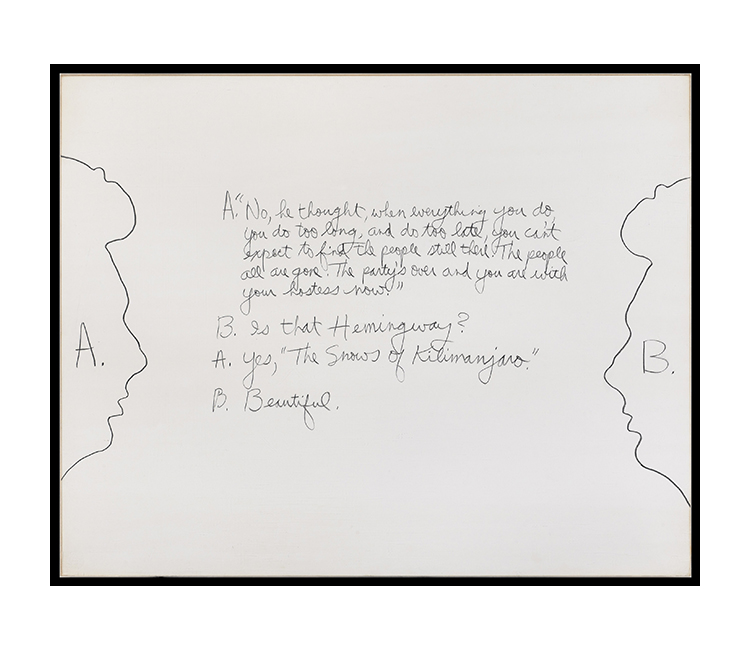 A. "No, he thought, when everything you do,
you do too long, and do too late, you can't
expect to find the people still there. The people
all are gone. The party's over and you are with
your hostess now."
B. Is that Hemingway?
A. Yes, "The Snows of Kilimanjaro."
B. Beautiful.
A.
B.